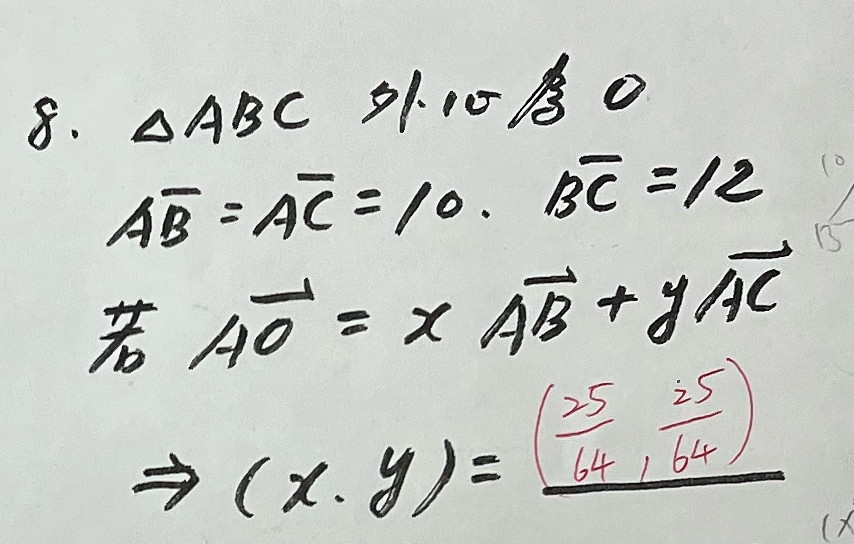 8. △ABC 外心為 O
AB̅ = AC̅ = 10. BC̅ = 12
若 AO⃗ = x AB⃗ + y AC⃗
⇒ (x. y) = (25/64, 25/64)
10
B
(x